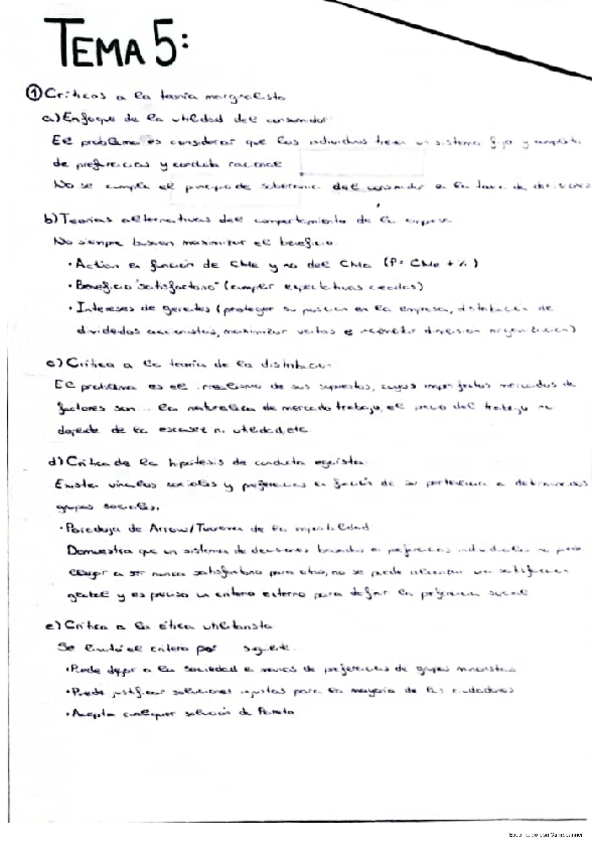 TEMA 5:
① Críticas a la teoría marginalista
a) Enfoque de la utilidad del consumidor
El problema es considerar que los individuos tienen un sistema fijo y completo
de preferencias y conducta racional
No se cumple el principio de soberanía del consumidor en la toma de decisiones
b) Teorías alternativas del comportamiento de la empresa
No siempre buscan maximizar el beneficio.
• Actúan en función de CMe y no del CMa (P = CMe + %)
• Beneficio "satisfactorio" (cumplir expectativas creadas)
• Intereses de gerentes (proteger su posición en la empresa, distribución de
dividendos accionistas, maximizar ventas e
c) Crítica a la teoría de la distribución
El problema es el irrealismo de sus supuestos, cuyos imperfectos mercados de
factores son la naturaleza de mercado trabajo, el precio del trabajo no
depende de la escasez ni utilidad, etc.
d) Crítica de la hipótesis de conducta egoísta
Existen vínculos sociales y preferencias en función de su pertenencia a determinados
grupos sociales.
• Paradoja de Arrow/Teorema de la imposibilidad
Demuestra que un sistema de decisiones basado en preferencias individuales no puede
llegar a ser nunca satisfactorio para otro, no se puede
y es preciso un criterio externo para definir la preferencia social
e) Crítica a la ética utilitarista
Se limita el criterio por siguiente.
• Puede dejar a la sociedad en manos de preferencias de grupos minoritarios
• Puede justificar soluciones injustas para la mayoría de los ciudadanos
• Acepta cualquier solución de Pareto